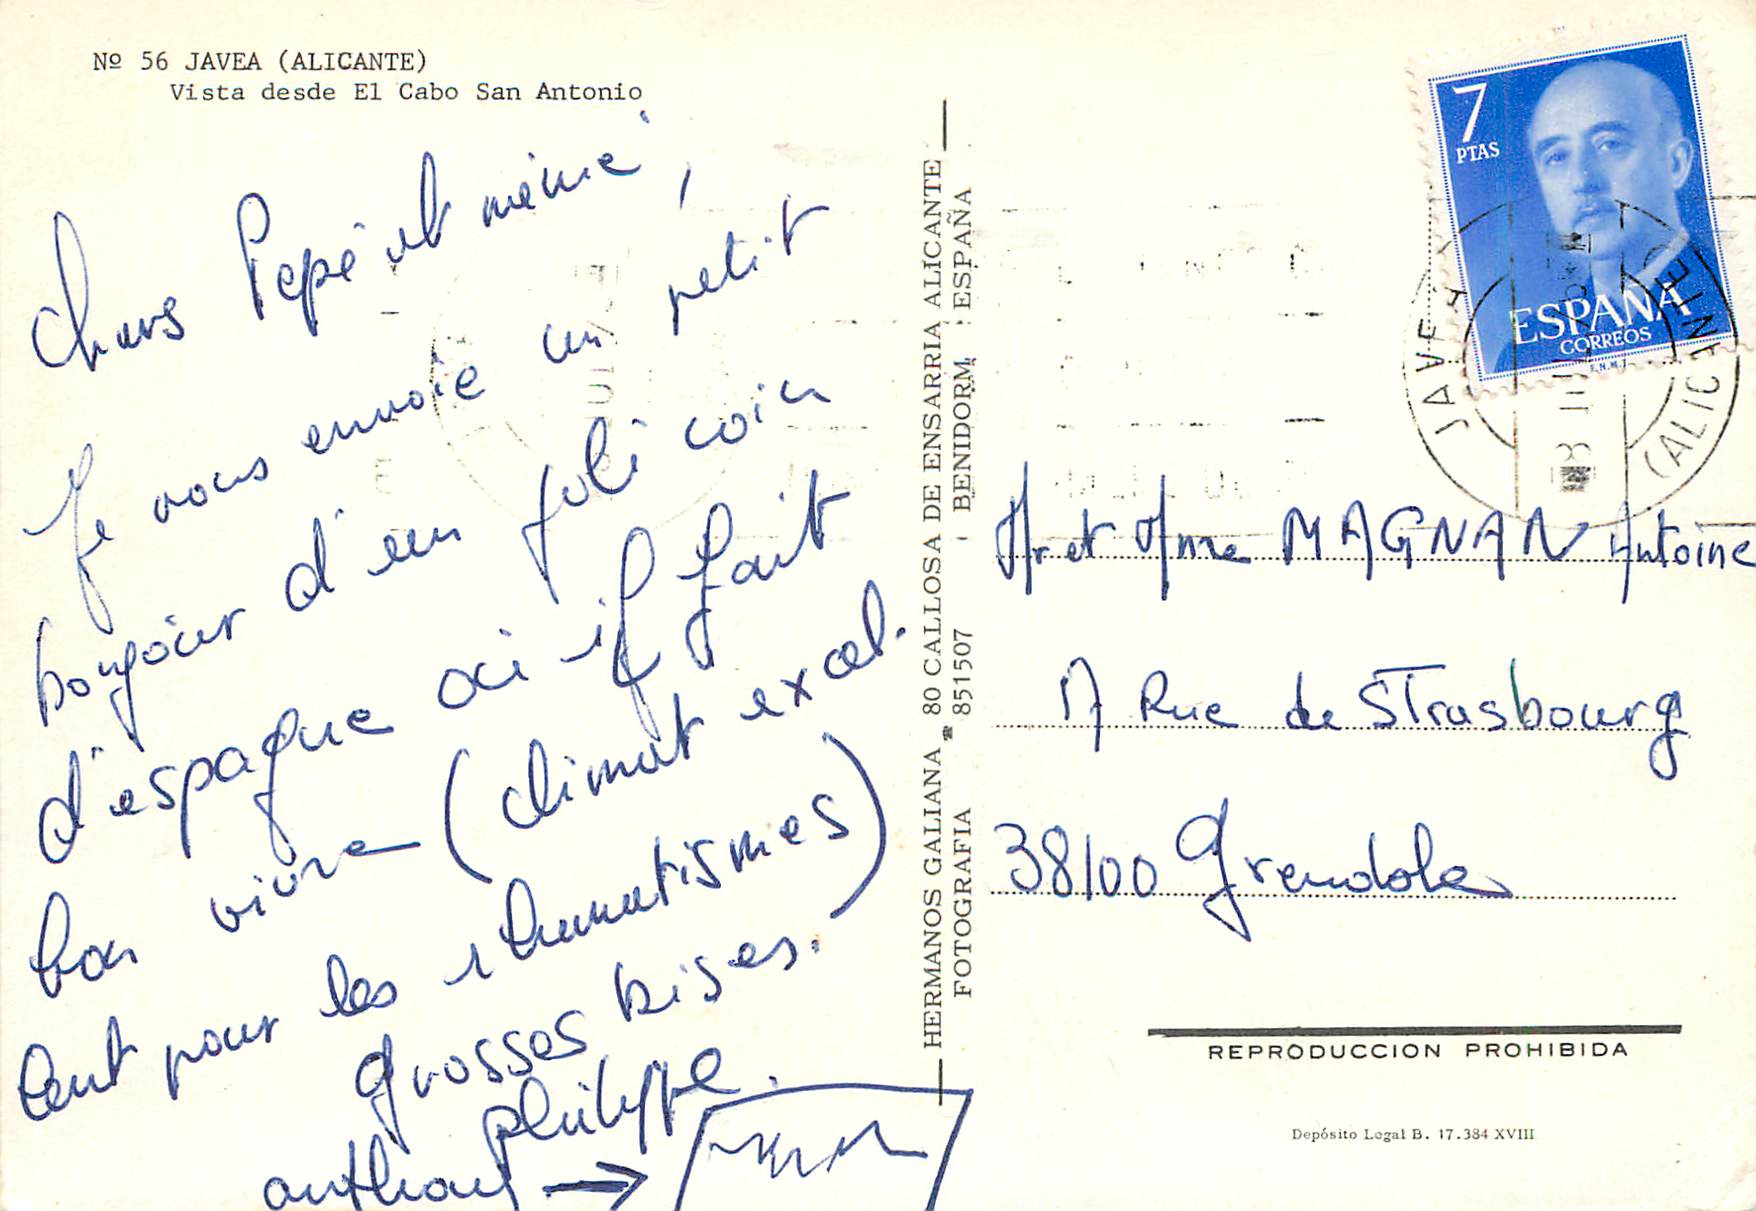 Nº 56 JAVEA (ALICANTE)
Vista desde El Cabo San Antonio
Chers Pepé et mémé,
Je vous envoie un petit
bonjour d'un joli coin
d'espagne où il fait
bon vivre (climat excel.
lent pour les rhumatismes)
Grosses bises.
philippe.
anthony →
HERMANOS GALIANA ☎ 80 CALLOSA DE ENSARRIA ALICANTE
FOTOGRAFIA 851507 BENIDORM ESPAÑA
7
PTAS
ESPAÑA
CORREOS
F.N.M.T.
JAVEA (ALICANTE)
Mr et Mme MAGNAN Antoine
17 Rue de STrasbourg
38100 Grenoble
REPRODUCCION PROHIBIDA
Depósito Legal B. 17.384 XVIII